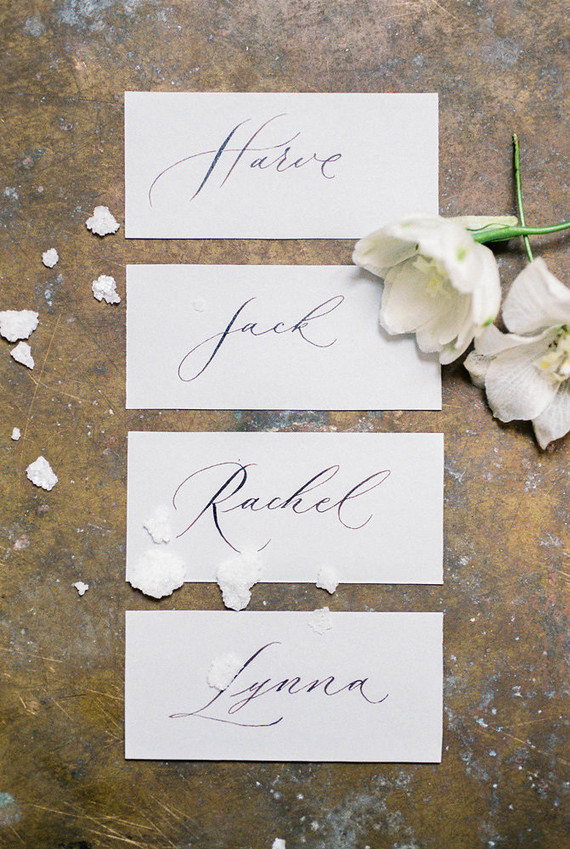 Harve
Jack
Rachel
Lynna